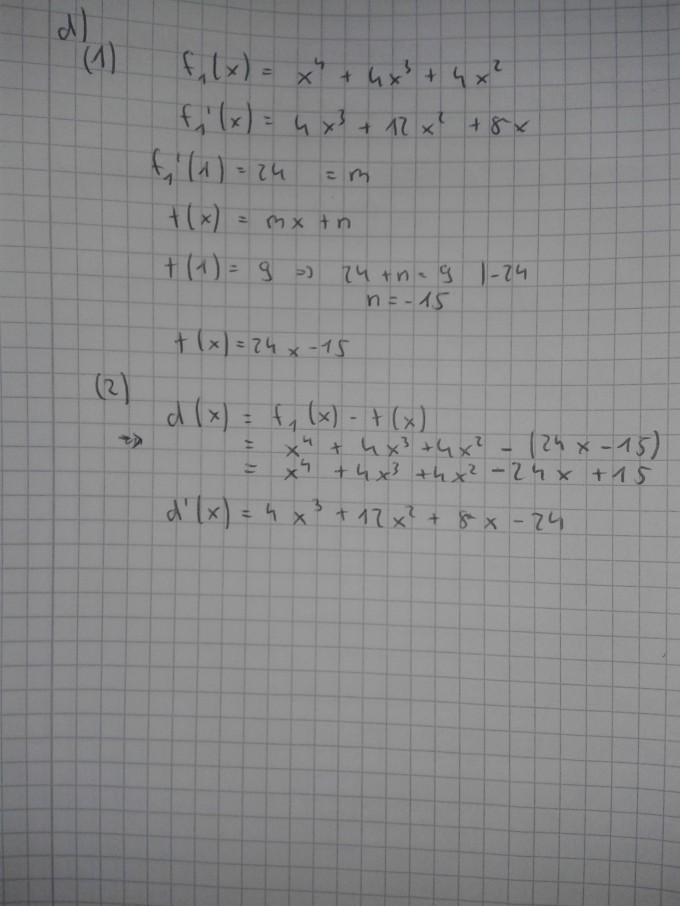 d)
(1) f₁(x) = x⁴ + 4x³ + 4x²
f₁'(x) = 4x³ + 12x² + 8x
f₁'(1) = 24 = m
t(x) = mx + n
t(1) = 9 => 24 + n = 9 |-24
n = -15
t(x) = 24x - 15
(2)
d(x) = f₁(x) - t(x)
=> = x⁴ + 4x³ + 4x² - (24x - 15)
= x⁴ + 4x³ + 4x² - 24x + 15
d'(x) = 4x³ + 12x² + 8x - 24